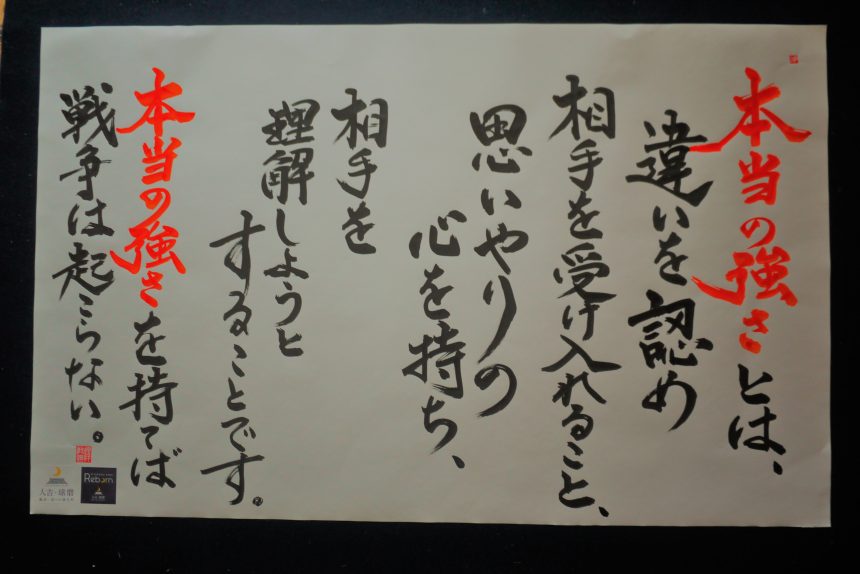 本当の強さとは、
違いを認め
相手を受け入れること、
思いやりの
心を持ち、
相手を
理解しようと
することです。
本当の強さを持てば
戦争は起こらない。
人吉・球磨
Reborn.